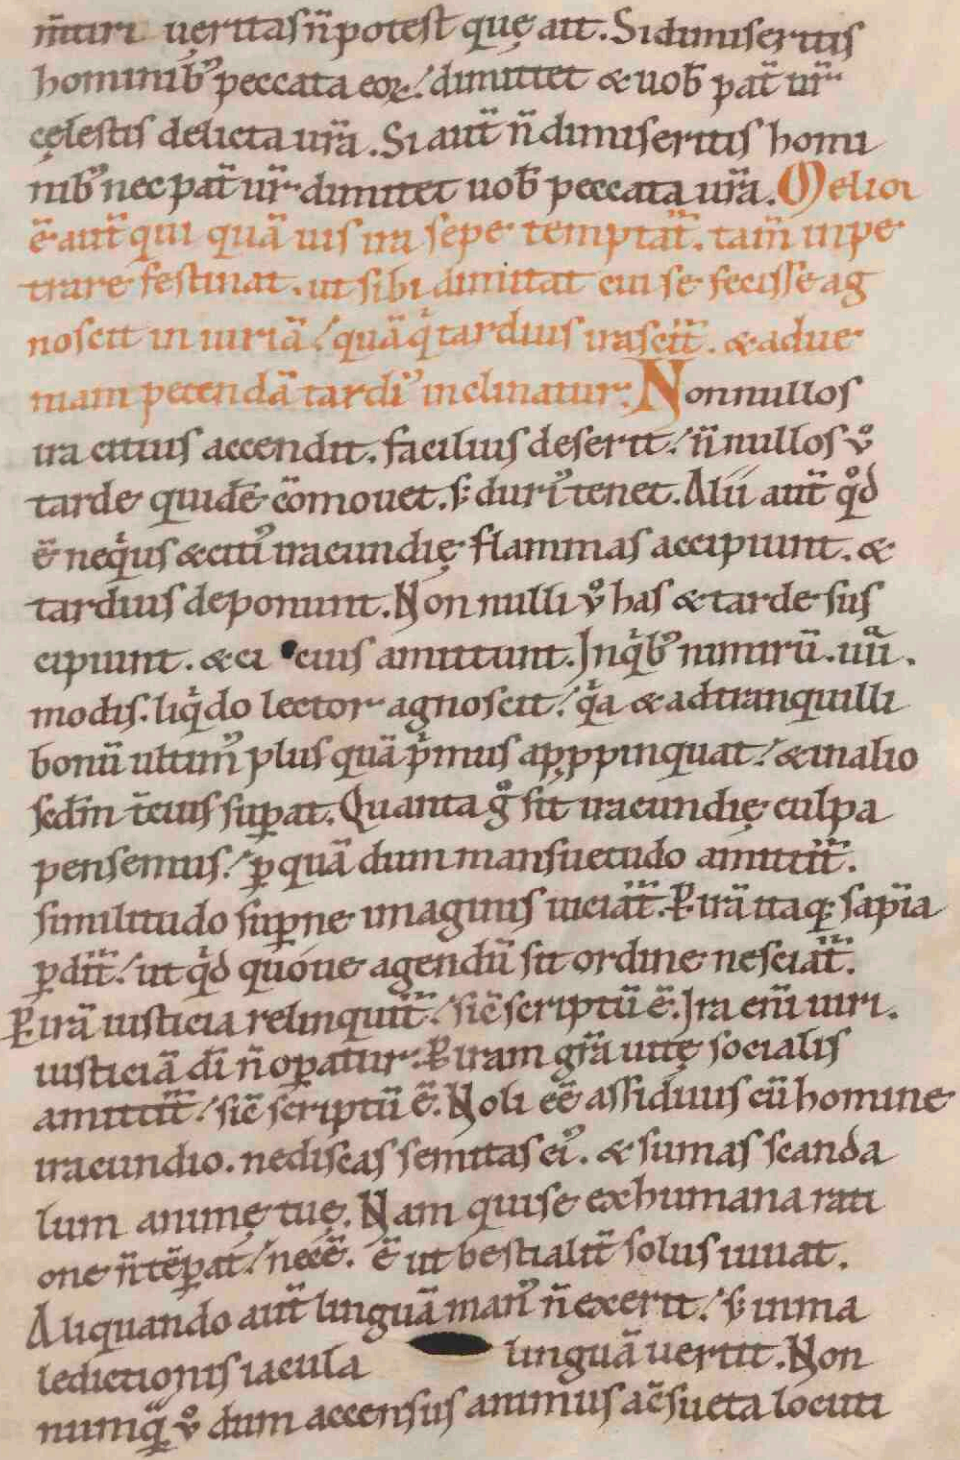 m̅tiri uęritas n̅ potest quę ait. Si dimiseritis
hominib᷒ peccata eoꝝ ⁊ dimittet & uob̅ pat̅ ur̅
cęlestis delicta ur̅a. Si aut̅ n̅ dimiseritis homi
nib᷒ nec pat̅ ur̅ dimittet uob̅ peccata ur̅a. Melior
e̅ aut̅ qui quā uis ira sepe temptat̅. tam̅ inpe
trare festinat. ut sibi dimittat cui se fecisse ag
noscit in iuriā / quā q̇ tardius irascit̅. & adue
niam petendā tardi᷒ inclinatur. Nonnullos
ira citius accendit. facilius deserit / n̅nullos uͦ
tarde quide̅ co̅mouet. s; duri᷒ tenet. Alii aut̅ qͦd
e̅ neq̇us & citi᷒ iracundię flammas accipiunt. &
tardius deponunt. Non nulli uͦ has & tarde sus
cipiunt. & ci cius amittunt. In q̇b᷒ nimirū. iiii.
modis. liq̇do lector agnoscit / q̇a & ad tranquilli
bonū ultim᷒ plus quā ṗmus aꝓpinquat / & in alio
sedm̅ t̅cius suꝑat. Quanta gͦ sit iracundię culpa
pensemus / ꝑ quā dum mansuetudo amittit̅.
similitudo suꝑne imaginis uiciat̅. P̱ irā itaq; sapi̅a
ꝑdit̅ / ut q̇d quoue agendū sit ordine nesciat̅.
P̱ irā iusticia relinquit̅ / sic̅ scriptū e̅. Ira eni̅ uiri.
iusticiā di̅ n̅ oꝑatur. P̱ iram gr̅a uitę socialis
amittit̅ / sic̅ scriptū e̅. Noli ee̅ assiduus cū homine
iracundo. ne discas semitas ei᷒. & sumas scanda
lum animę tuę. Nam qui se ex humana rati
one n̅ te̅ꝑat / nece̅e. e̅ ut bestialit̅ solus uiuat.
Aliquando aut̅ linguā ira man᷒ n̅ exerit / s; in ma
ledictionis iacula linguā uertit. Non
numq̅ uͦ dum accensus animus ac̅sueta locuti